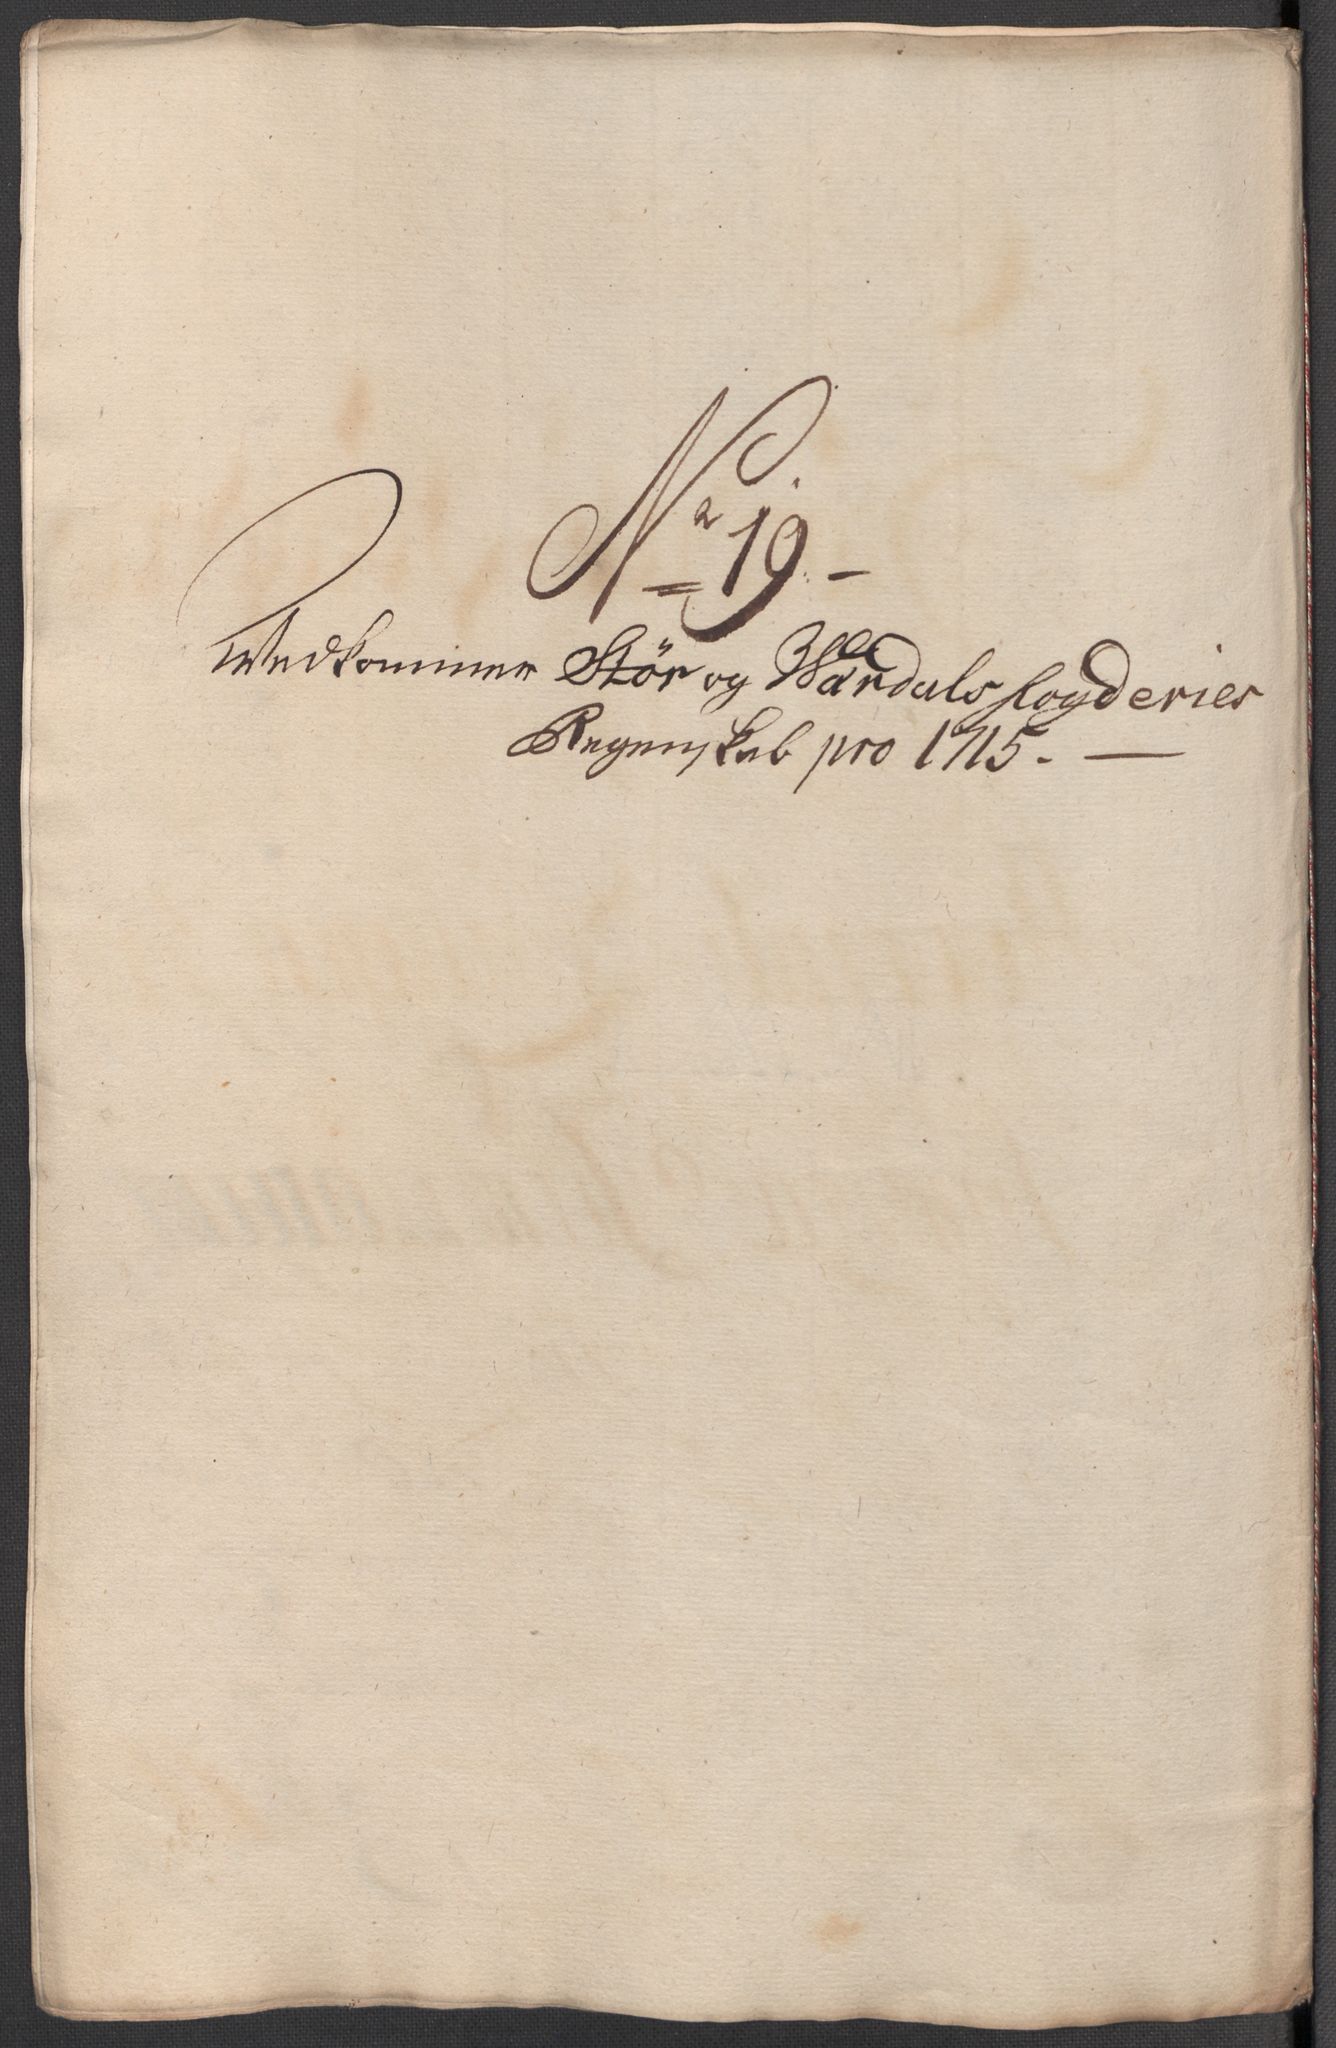 No 19.
Wedkommer Stör og Wærdals fogderies
Regenskab pro 1715.